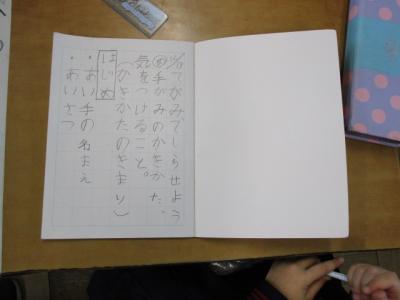 てがみでしらせよう
手がみのかきかた、
気をつけること。
(かきかたのきまり)
はじめ
・あい手の名まえ
・あいさつ